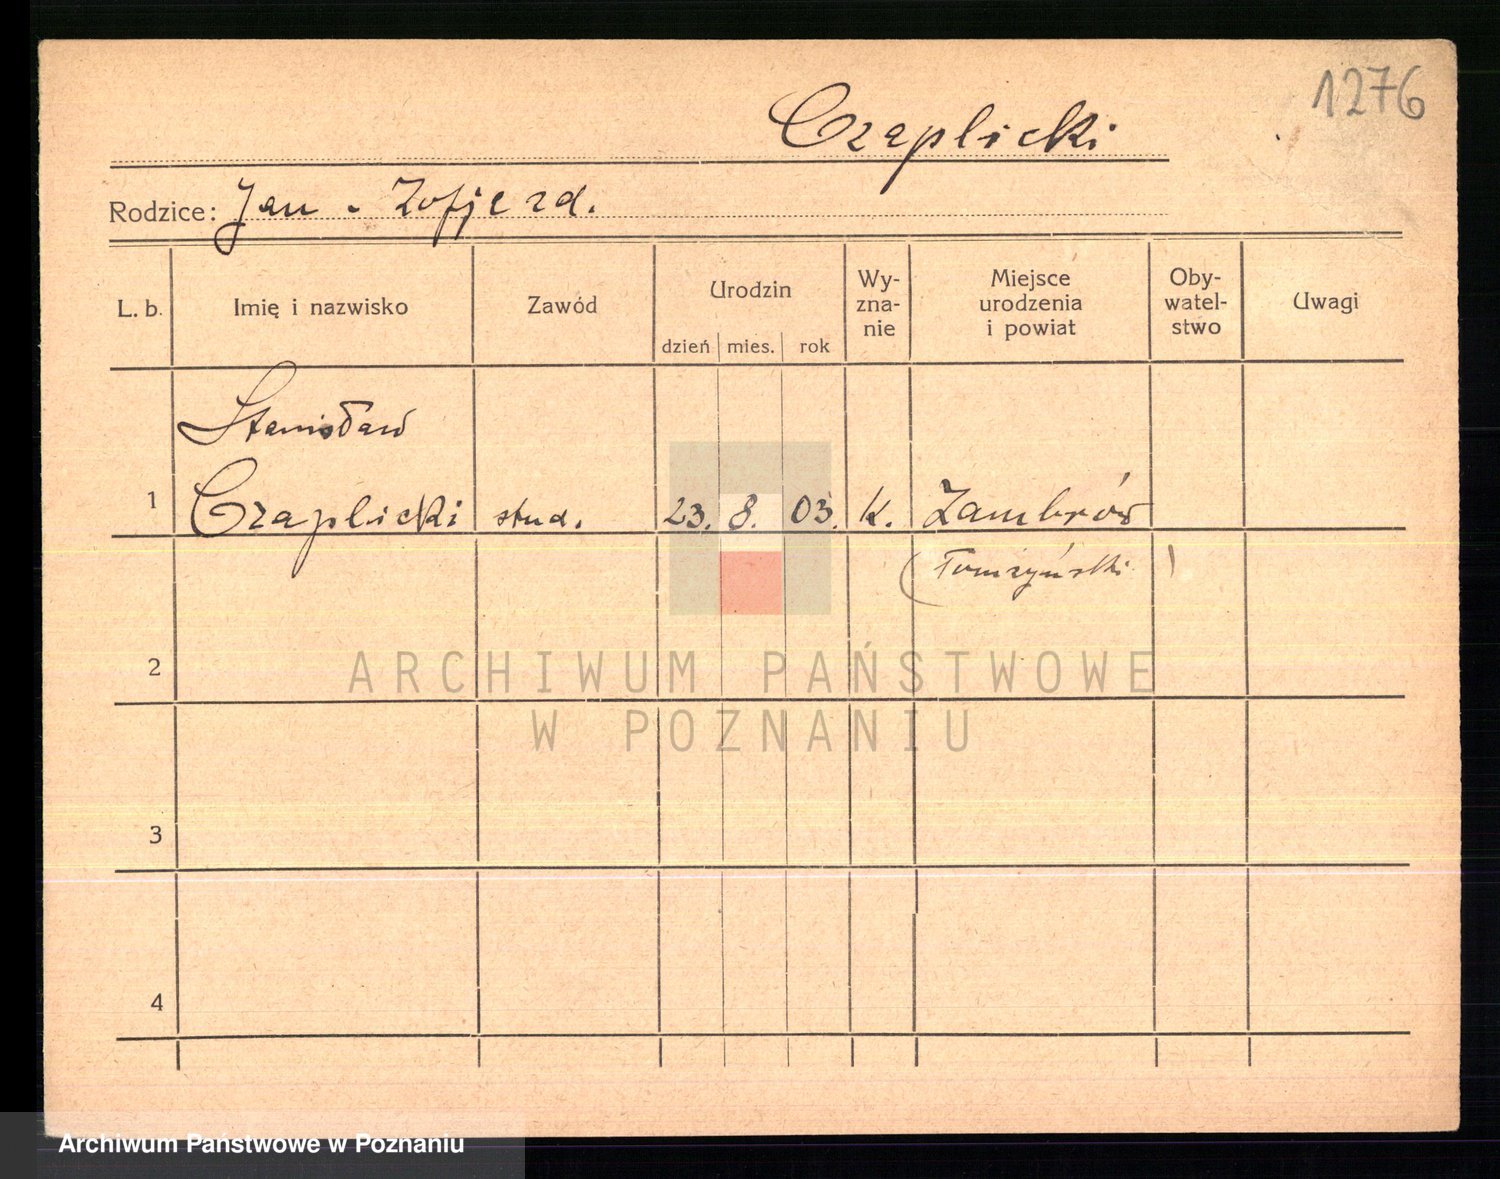 1276
Czaplicki
Rodzice: Jan - Zofje zd.
L. b. Imię i nazwisko Zawód Urodzin dzień mies. rok Wy-zna-nie Miejsce urodzenia i powiat Oby-watel-stwo Uwagi
Stanisław
1 Czaplicki stud. 23. 8. 03. k. Zambrów
(Łomżyński)
2
ARCHIWUM PAŃSTWOWE
W POZNANIU
3
4
Archiwum Państwowe w Poznaniu